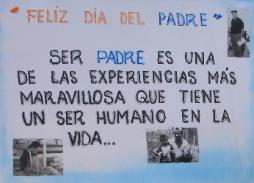 "FELIZ DÍA DEL PADRE"
SER PADRE ES UNA
DE LAS EXPERIENCIAS MÁS
MARAVILLOSA QUE TIENE
UN SER HUMANO EN LA
VIDA...